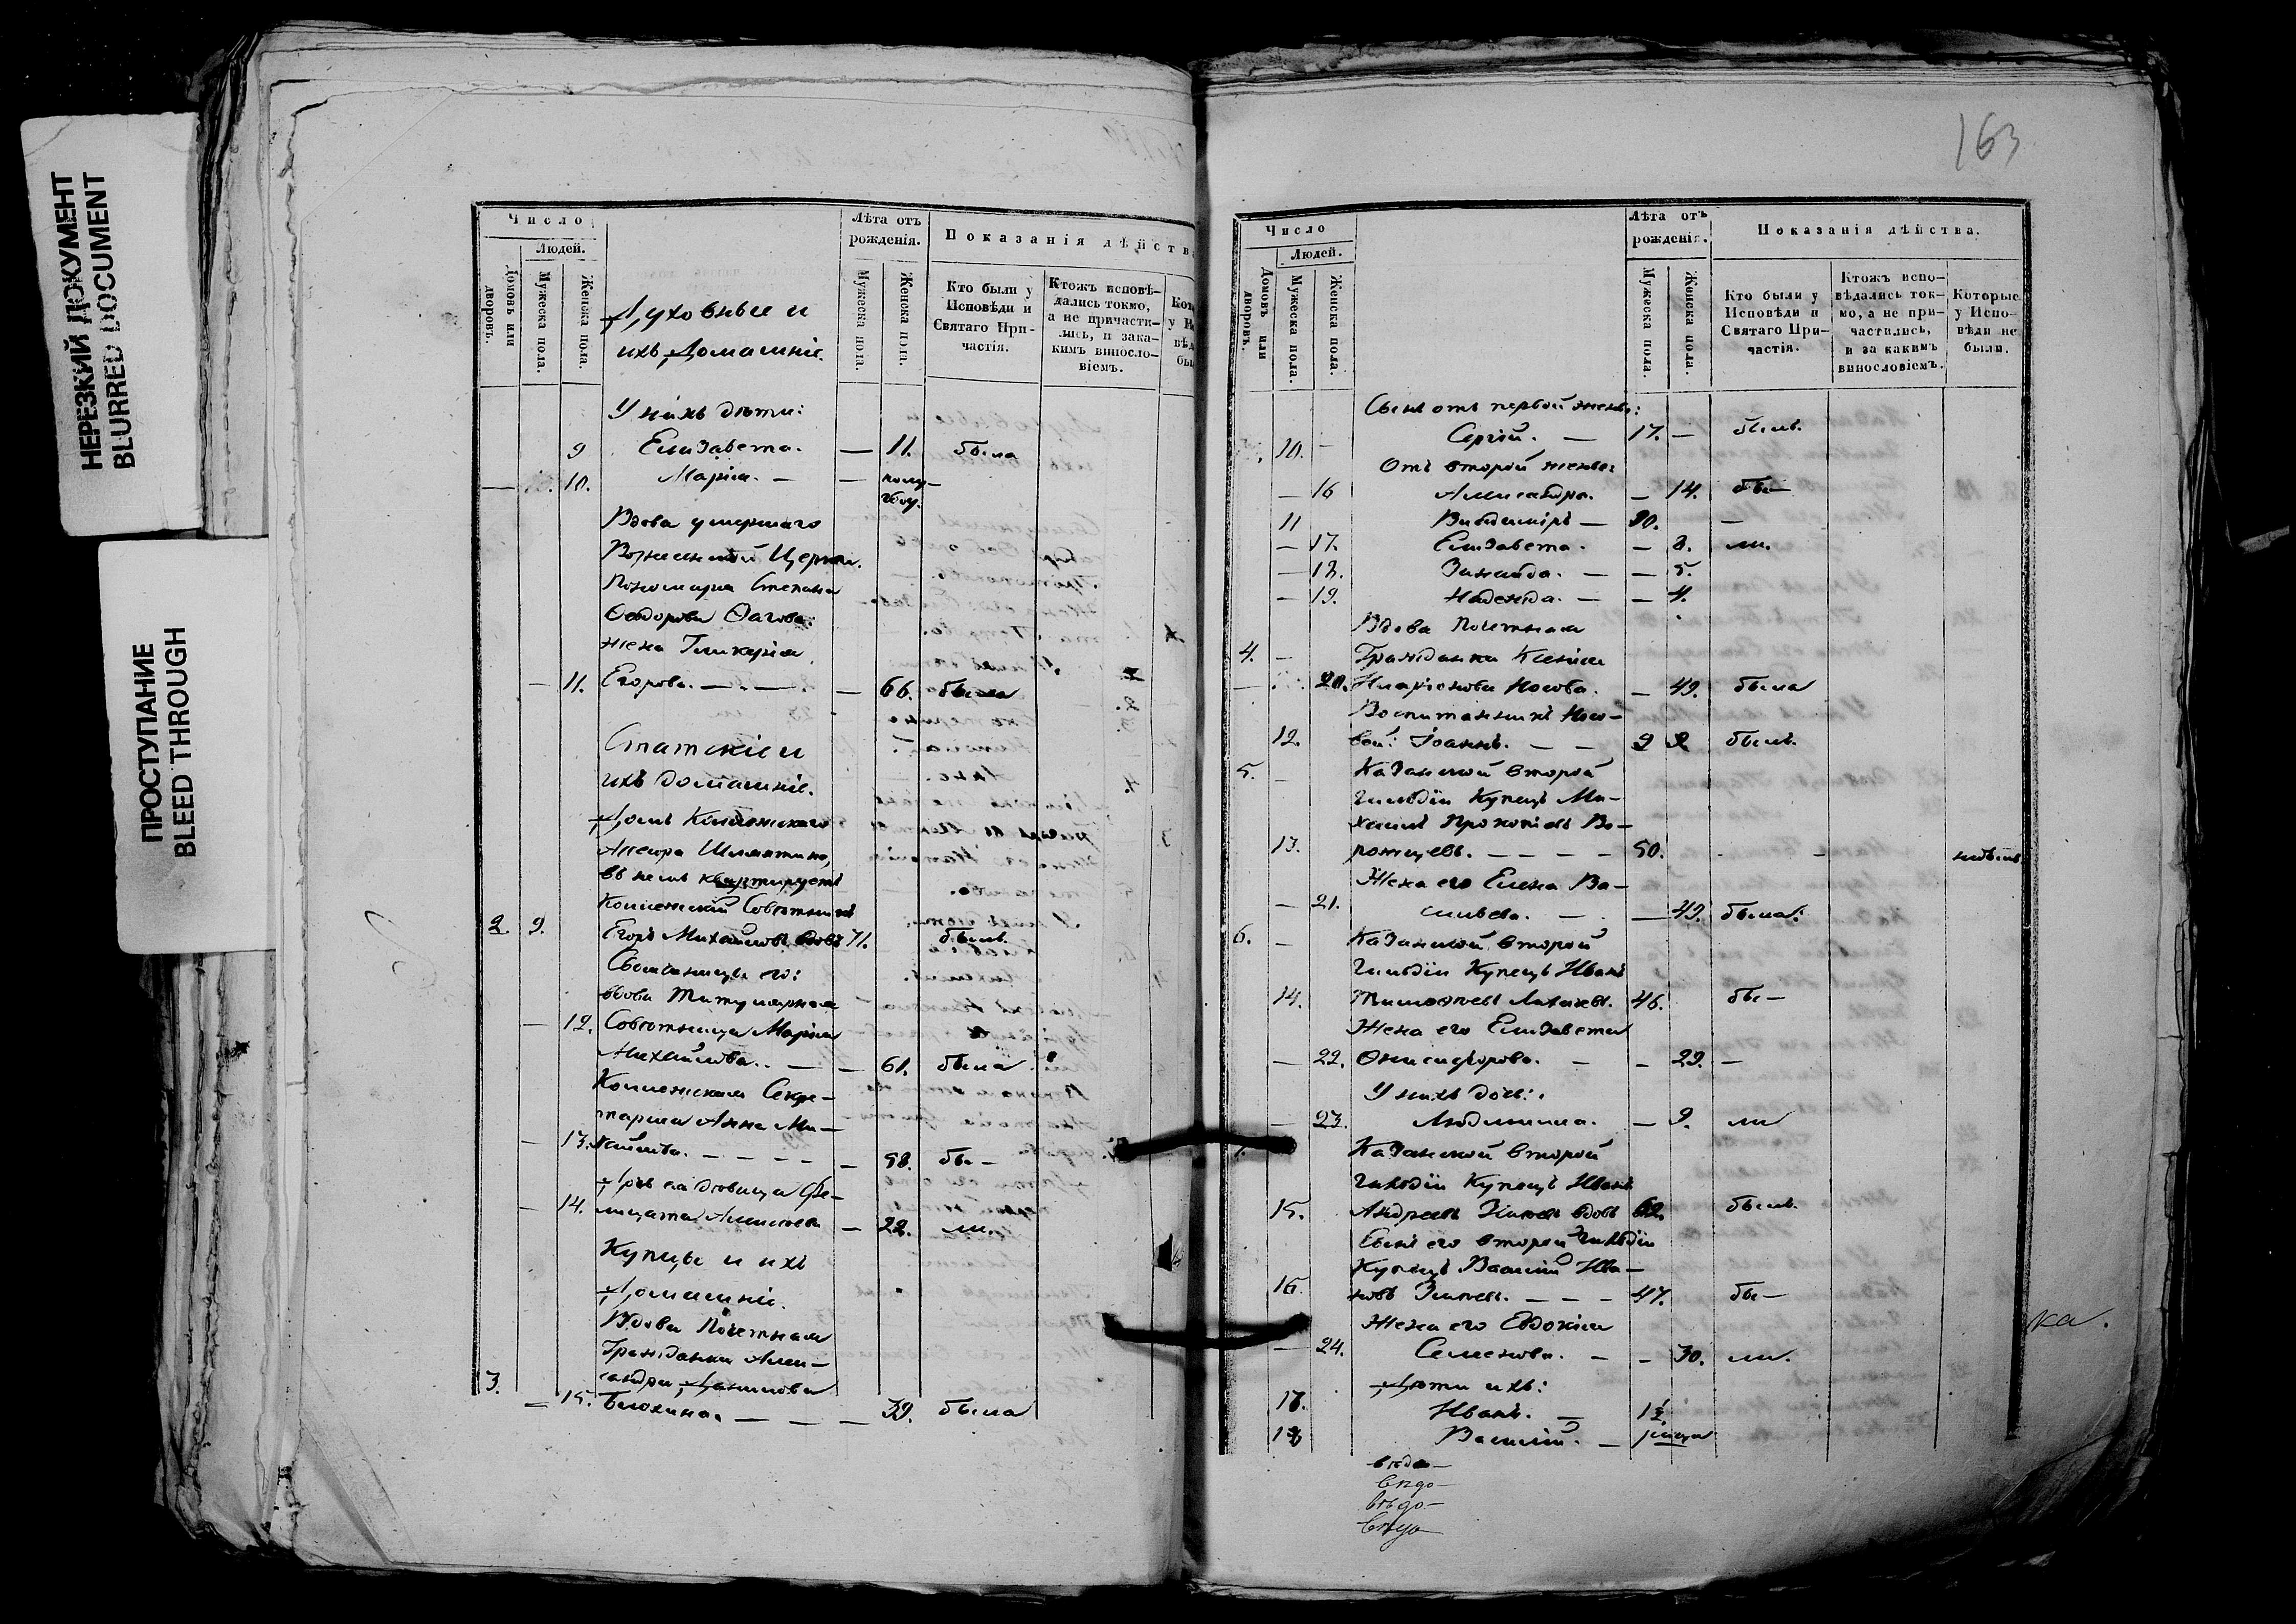 НЕРЕЗКИЙ ДОКУМЕНТ
BLURRED DOCUMENT
ПРОСТУПАНИЕ
BLEED THROUGH
Число
Людей.
Домовъ или дворовъ.
Мужеска пола.
Женска пола.
Духовные и
ихъ Домашніе.
Лѣта отъ рожденія.
Мужеска пола.
Женска пола.
Показанія дѣйства
Кто были у Исповѣди и Святаго Причастія.
Ктожъ исповѣдались токмо, а не причастились, и закакимъ винословіемъ.
У нихъ дѣти:
9 Елизавета. — 11. была
— 10. Марія. — — полу-
году.
Вдова умершаго
Церкви.
Пономаря Степана
Ѳедорова
жена Гликерія
— 11. Егорова. — — — 66. была
Статскіе и
ихъ домашніе.
Домъ Коллежскаго
въ немъ квартируетъ
Коллежскій Совѣтникъ
2. 9. Егоръ Михайловъ вдовъ 71. былъ
его:
вдова Титулярная
— 12. Совѣтница Марія
Михайлова. — — 61. была
Коллежская Секре-
тарша Анна Ми-
— 13. хайлова. — — — — 58. бы—
Дочь ея дѣвица Фе-
— 14. лицата Алексѣева — 22. ла.
Купцы и ихъ
Домашніе.
Вдова Почетная
Гражданка Алек-
3. сандра Данилова
— 15. — — — 39. была
163
Число
Людей.
Домовъ или дворовъ.
Мужеска пола.
Женска пола.
Лѣта отъ рожденія.
Мужеска пола.
Женска пола.
Показанія дѣйства.
Кто были у Исповѣди и Святаго Причастія.
Ктожъ исповѣдались токмо, а не причастились, и за какимъ винословіемъ.
Которые у Исповѣди не были.
Сынъ отъ первой жены:
10. — Сергій. — 17. — былъ.
Отъ второй жены:
— 16 Александра. — 14. бы—
11 Владиміръ — 10. —
— 17. Елизавета. — 8. ли.
— 18. Зинаида. — — 5.
— 19. Надежда. — — 4.
Вдова Почетная
4. — Гражданка Ксенія
— 20. Иларіонова Носова. — 49. была
Воспитанникъ Носо-
12. вой: Іоаннъ. — — 9 былъ.
5. — Казанской второй
гильдіи Купецъ Ми-
хаилъ Прокопіевъ Во-
13. рожцовъ. — — — — 50. небылъ
Жена его Елена Ва-
— 21. сильева. — — 49. была.
6. — Казанской второй
гильдіи Купецъ Иванъ
14. Тимофеевъ 46. бы—
Жена его Елизавета
— 22. Онисифорова. — — 29. —
У нихъ дочь:
— 23. Людмила. — 9. ли
Казанской второй
гильдіи Купецъ Иванъ
15. Андреевъ вдовъ 62. былъ.
Сынъ его второй гильдіи
Купецъ Василій Ива-
16. новъ — — — 47. бы—
Жена его Евдокія
— 24. Семенова. — — 30. ли.
Дѣти ихъ:
17. Иванъ. — 1½
18 Василій. —
вѣдо—
вѣдо—
вѣдо—
ка.